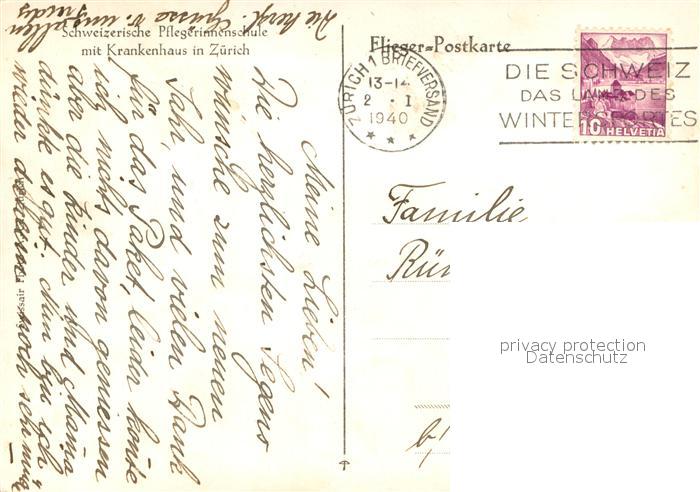 Schweizerische Pflegerinnenschule
mit Krankenhaus in Zürich
Flieger=Postkarte
ZÜRICH 1 BRIEFVERSAND
13-14
2. I
1940
DIE SCHWEIZ
DAS LAND DES
WINTERSPORTES
10 HELVETIA
Meine Lieben!
Die herzlichsten Segens
wünsche zum neuen
Jahr, und vielen Dank
für das Paket, leider konnte
ich nichts davon geniessen
aber die Kinder und Mama
dünkte es gut. Nun bin ich
wieder daheim noch sehr müde
Die herzl. Grüsse v. uns
allen
Familie
privacy protection
Datenschutz